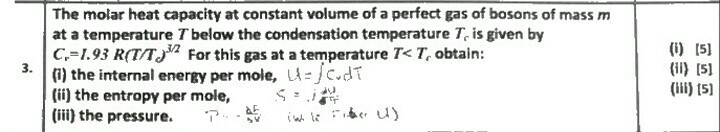 The molar heat capacity at constant volume of a perfect gas of bosons of mass m
at a temperature T below the condensation temperature Tc is given by
Cv=1.93 R(T/Tc)^3/2 For this gas at a temperature T< Tc obtain:
3. (i) the internal energy per mole, U=∫CvdT (i) [5]
(ii) the entropy per mole, S = ∫ (ii) [5]
(iii) the pressure. P = - (iii) [5]